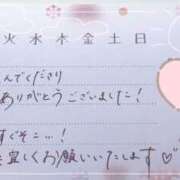 火水木金土日
んでくださり
ありがとうございました!
すぐそこ…!
宜しくお願いいたします♡